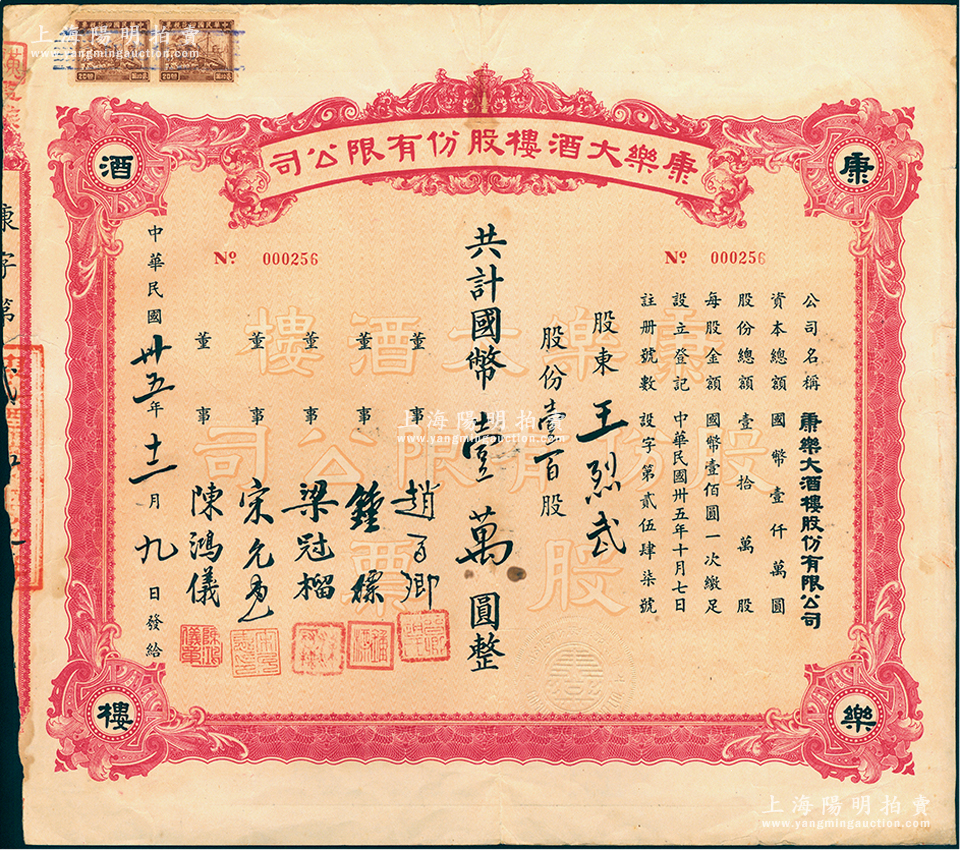 上海陽明拍賣
www.yangmingauction.com
康樂大酒樓股份有限公司
康
酒
樂
樓
Nº 000256
Nº 000256
公司名稱 康樂大酒樓股份有限公司
資本總額 國幣壹仟萬圓
股份總額 壹拾萬股
每股金額 國幣壹佰圓一次繳足
設立登記 中華民國卅五年十月七日
註册號數 設字第貳伍肆柒號
股東 王烈武
股份壹百股
共計國幣壹萬圓整
董事
董事 鍾標
董事 梁冠榴
董事 宋允惠
董事 陳鴻儀
中華民國卅五年十二月九日發給
康樂大酒樓
股份有限公司
股票
康字第
上海陽明拍賣
www.yangmingauction.com
上海陽明拍賣
www.yangmingauction.com